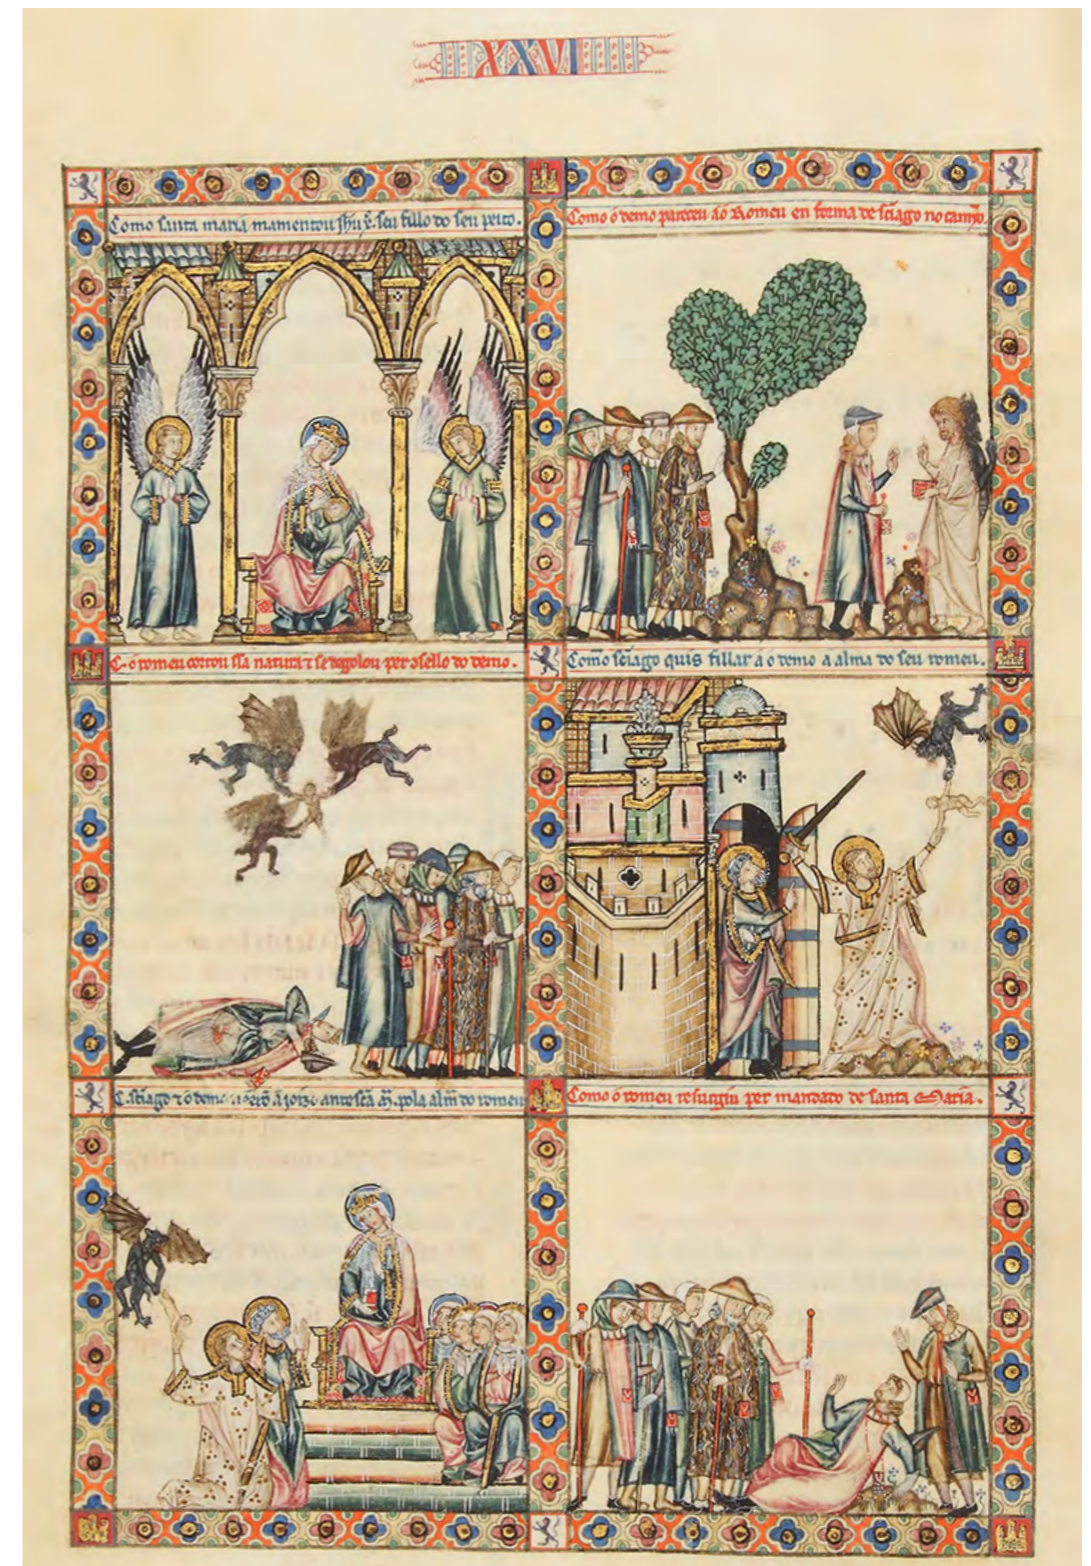 XXVI
Como santa maria mamentou ihu x̄. seu fillo do seu peito.
Como o demo pareceu ao Romeu en forma de sc̄iago no camỹo.
C. o romeu cortou ssa natura ⁊ se degolou per ↄsello do demo.
Como sc̄iago quis fillar a o demo a alma do seu romeu.
C. sc̄iago ⁊ o demo a joizo ante sc̄a m̄. pola alm̄ do romeu
Como o romeu resurgiu per mandado de santa Maria.